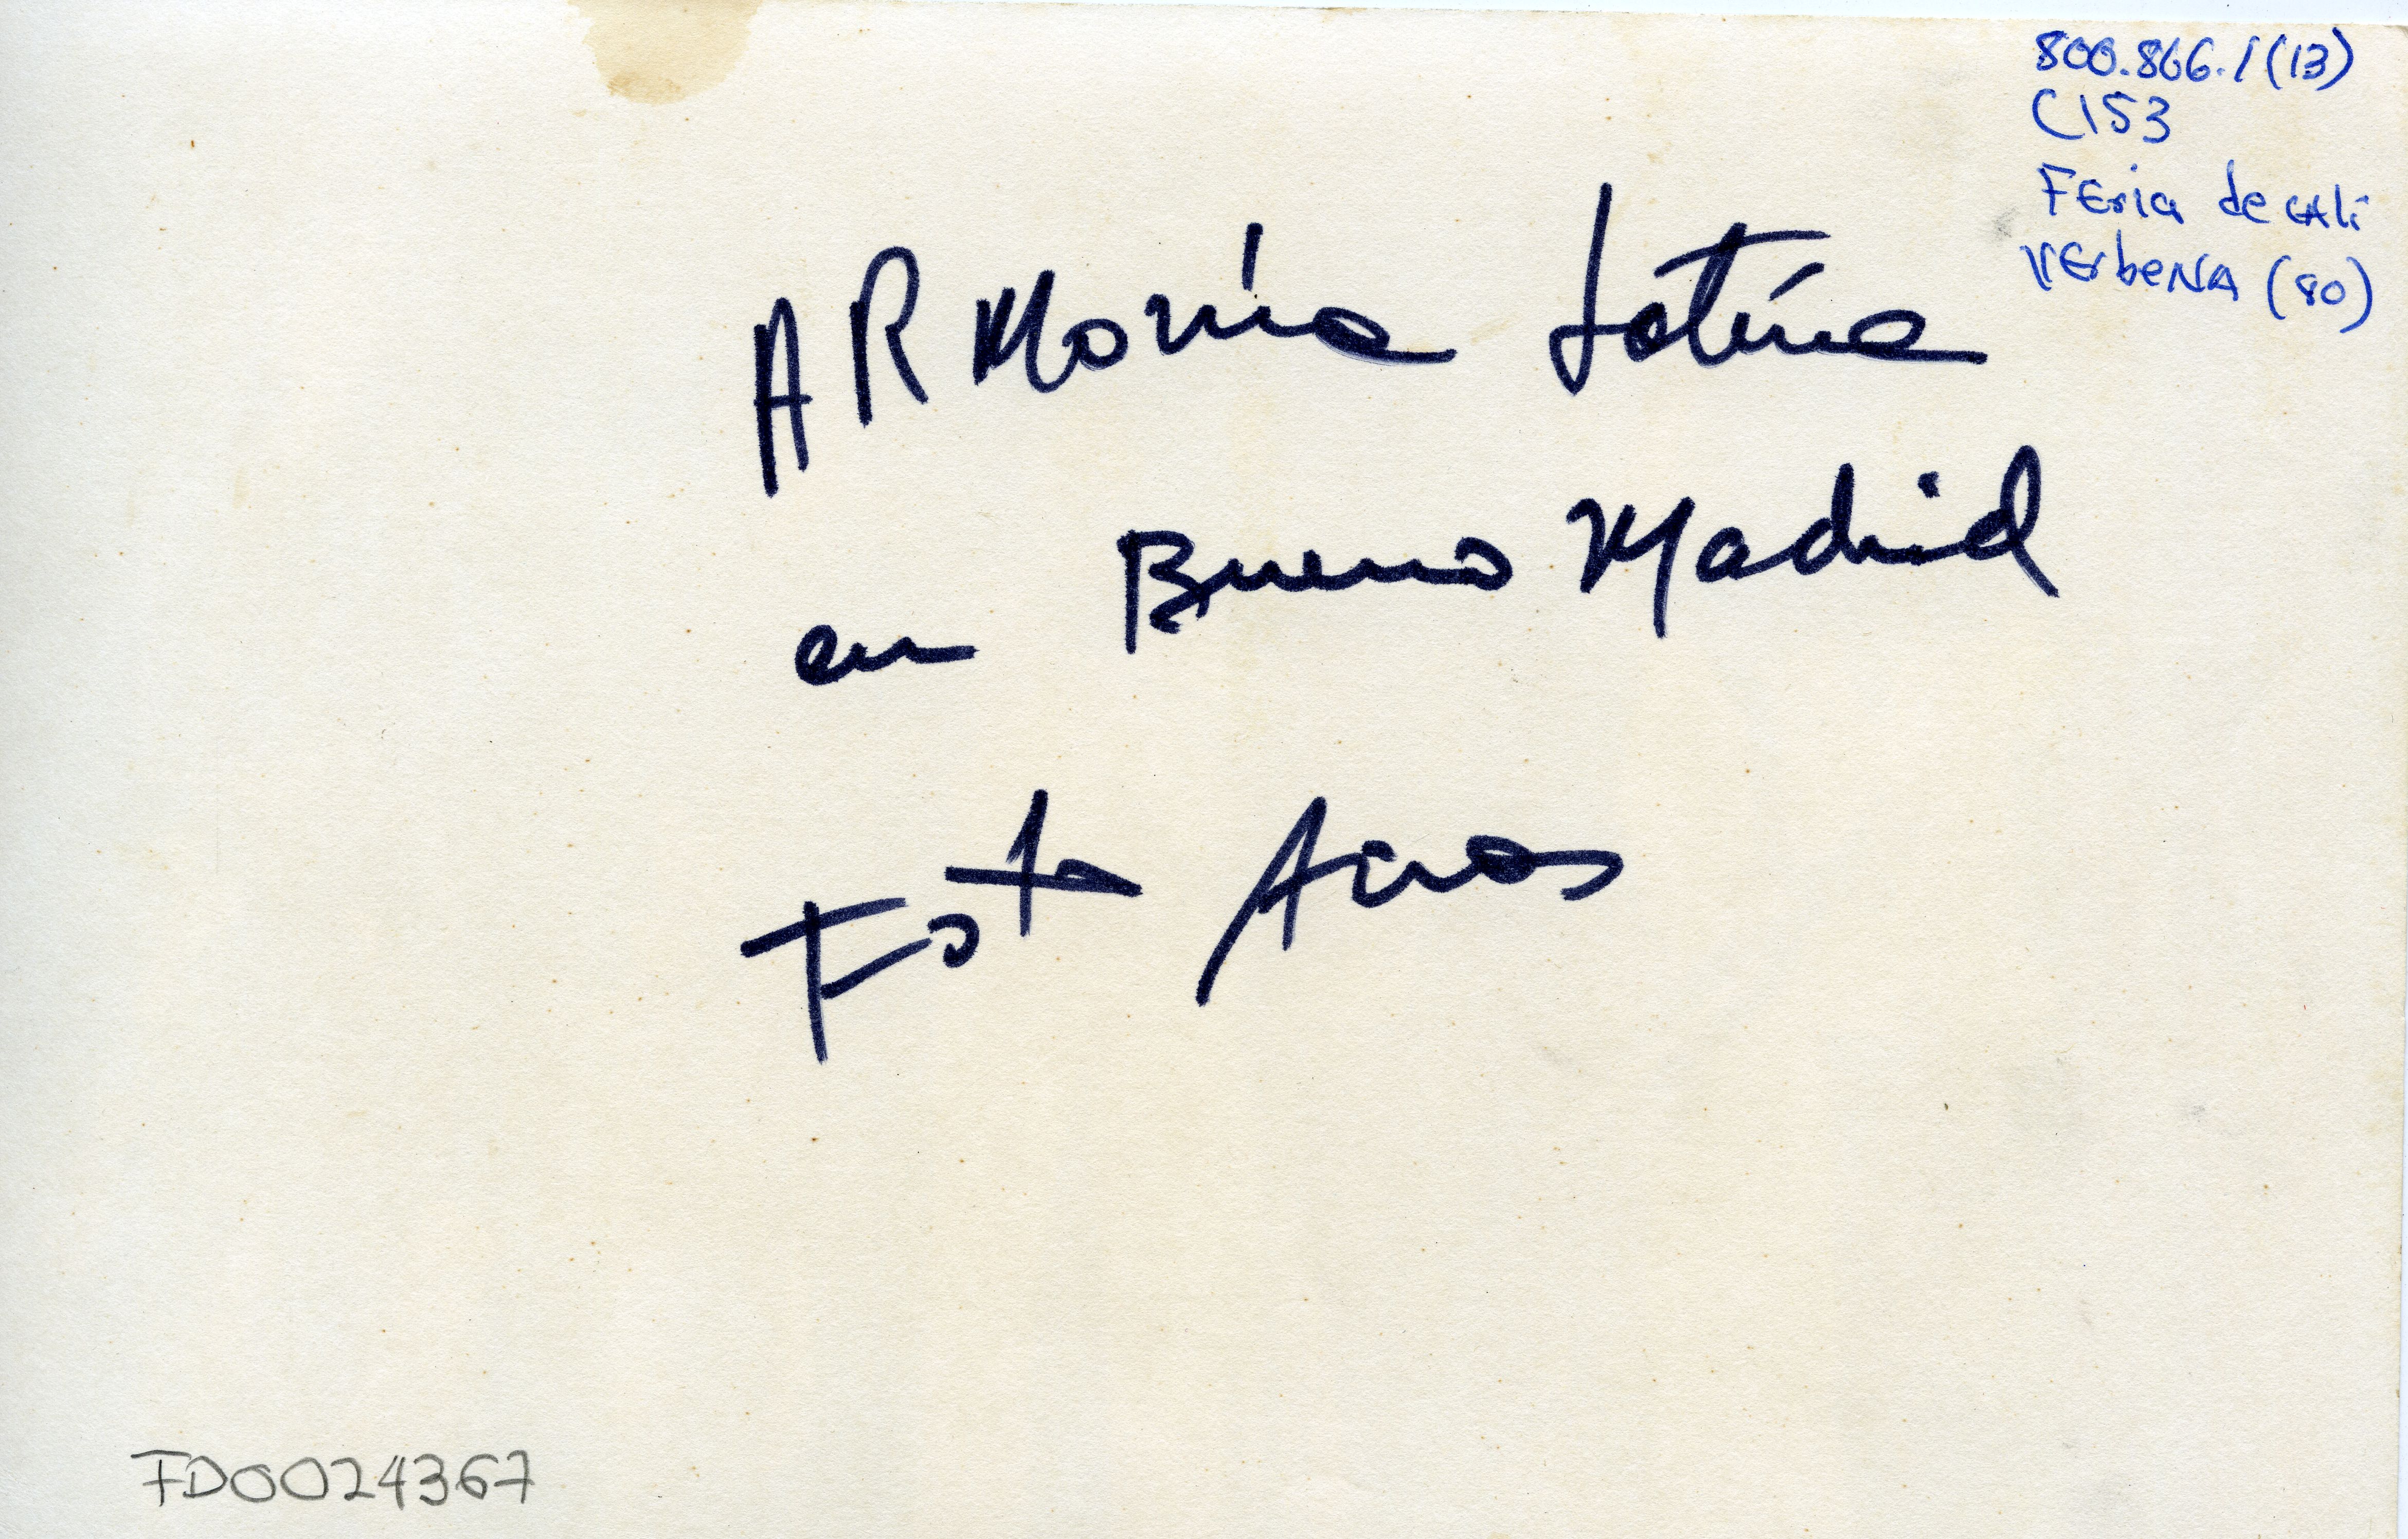 800.866.1(13)
C153
Feria de Cali
Verbena (80)
ARMonía Latína
en Bueno Madrid
Foto
FD0024367